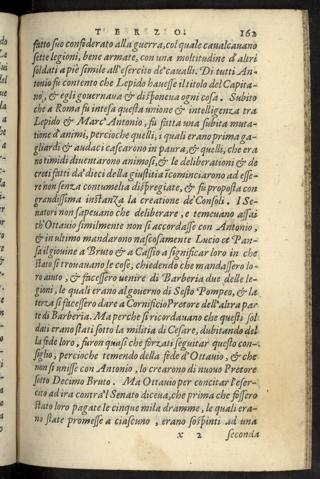 TERZO. 162
fatto suo confederato alla guerra, col quale caualcauano
sette legioni, bene armate, con una moltitudine d'altri
soldati a piè simile all'esercito de' caualli. Di tutti An-
tonio fu contento che Lepido hauesse il titolo del Capita-
no, & egli gouernaua & disponeua ogni cosa. Subito
che a Roma fu intesa questa unione & intelligenza tra
Lepido & Marc'Antonio, fu fatta una subita muta-
tione d'animi, percioche quelli, i quali erano prima ga-
gliardi & audaci cascarono in paura, & quelli, che era
no timidi diuentarono animosi, & le deliberationi & de
creti fatti da' dieci della giustitia icominciarono ad esse-
re non senza contumelia dispregiate, & fu proposta con
grandissima instanza la creatione de' Consoli. I Se-
natori non sapeuano che deliberare, e temeuano assai
th'Ottauio similmente non si accordasse con Antonio,
& in ultimo mandarono nascosamente Lucio et Pan-
sa il giouine a Bruto & a Cassio a significar loro in che
stato si trouauano le cose, chiedendo che mandassero lo-
ro aiuto, & facessero uenire di Barberia due delle le-
gioni, le quali erano al gouerno di Sesto Pompeo, & la
terza si facessero dare a Cornificio Pretore dell'altra par
te di Barberia. Ma perche si ricordauano che questi sol
dati erano stati sotto la militia di Cesare, dubitando del
la fede loro, furon quasi che forzati seguitar questo con-
siglio, percioche temendo della fede d'Ottauio, & che
non si unisse con Antonio, lo crearono di nuouo Pretore
sotto Decimo Bruto. Ma Ottauio per concitar l'eser-
cito ad ira contra'l Senato diceua, che prima che fossero
stato loro pagate le cinque mila dramme, le quali era-
no state promesse a ciascuno, erano sospinti ad una
x 2 seconda